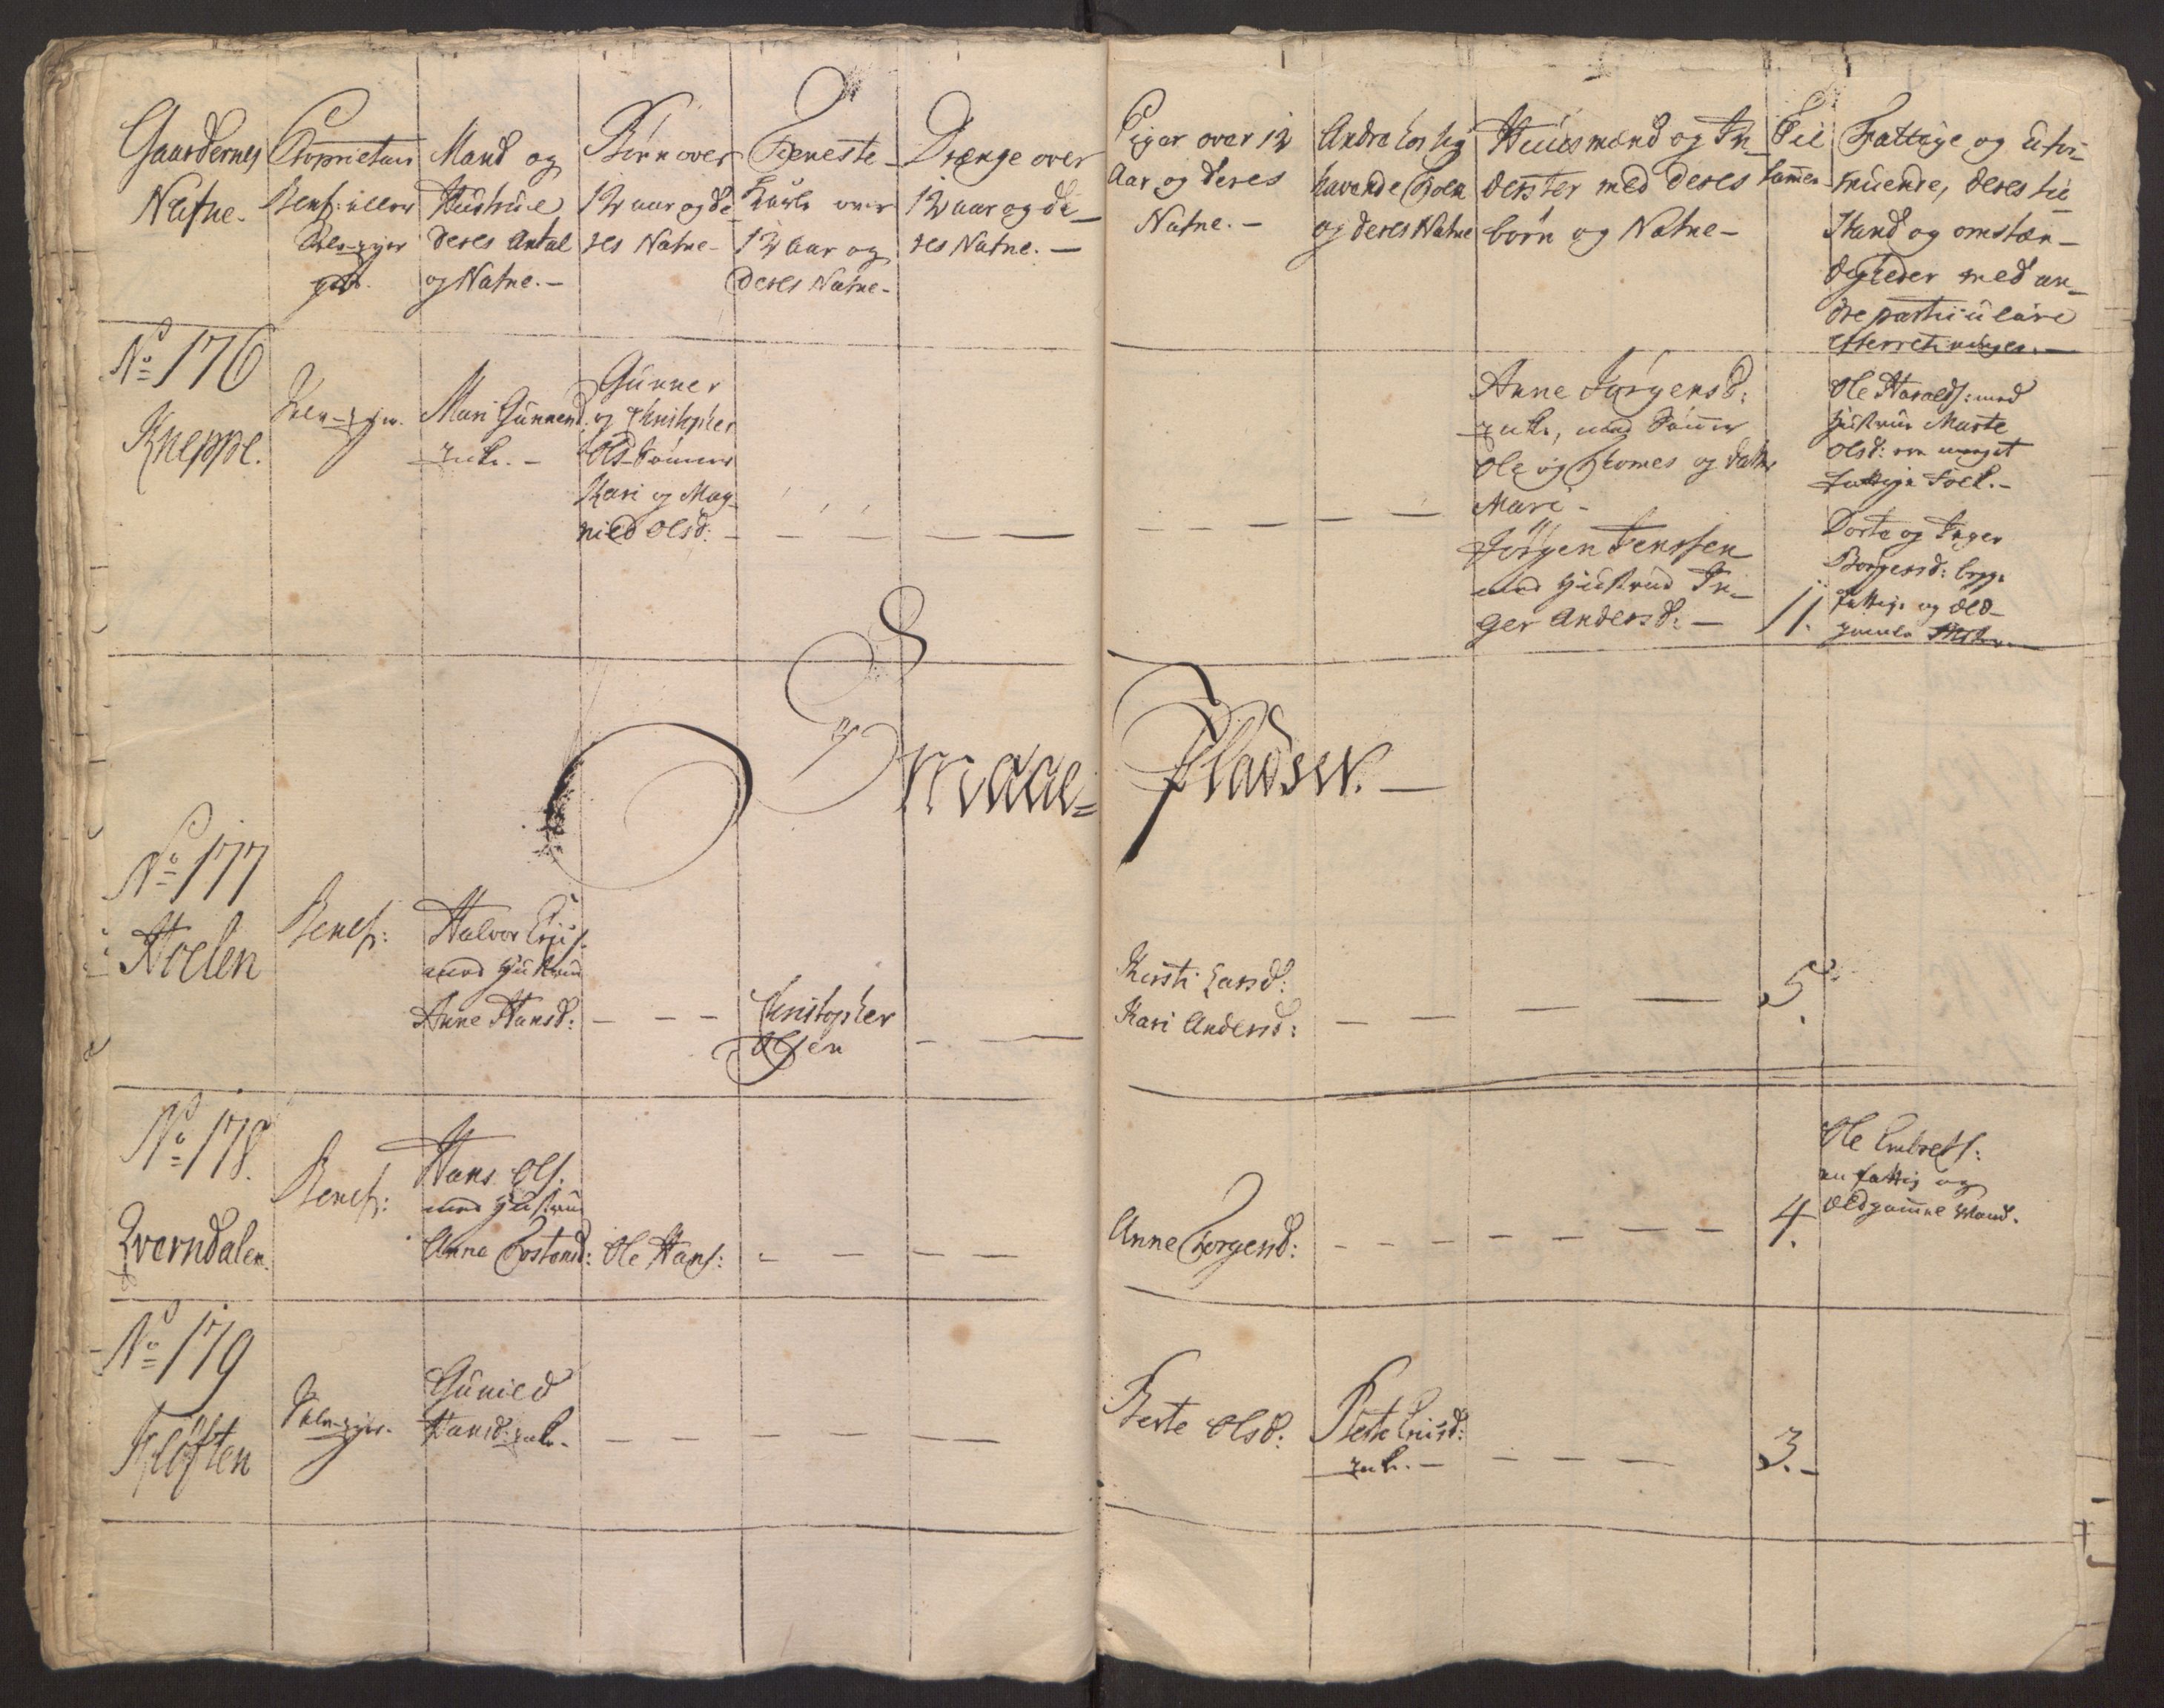 Gaardernes
Nafne.
Proprietair
Benef: eller
Selv-ejer
gods.
Mand og
Hustrue
deres Antal
og Nafne. -
Börn over
12 aar og de
res Nafne -
Tieneste
Karle over
12 Aar og
deres Nafne -
Drænge over
12 aar og de-
res Nafne. -
Piger over 12
Aar og deres
Nafne. -
Andre hos sig
havende Folk
og deres Nafne
Huusmænd og In-
derster med deres
börn og Nafne -
Til
sammen
Fattige og Ufor-
muende, deres til
stand og omstæn-
digheder med an-
dre particulaire
efterretninger. -
No 176
Kneppe.
Selv-ejer.
Mari Gunnersd.
enke. -
Gunner
og Christopher
Ols-Sönner
Kari og Mag-
nild Olsd: -
Anne Jörgensd:
enke, med Sönner
Ole og Thomes og datter
Mari -
Jörgen Jenssen
med Hustrue In-
ger Andersd: -
11.
Ole Haralds: med
Hustrue Marte
Olsd: em meget
fattige Folk. -
Dorte og Inger
Borgersd: begge
fattige og Æld-
gamle
Smaae=
Pladser. -
No 177
Holen
Benef:
Halvor
med Hustrue
Anne Hansd: -
Christopher
Olsen
Kirsti Larsd:
Kari Andersd:
5.
No 178.
Kverndalen.
Benef:
Hans Ols.
med Hustrue
Anne Tostensd:
Ole Hans:
Anne Torgersd:
4.
Ole Embrets:
en fattig og
Ældgammel Mand.
No 179
Klöften
Selv-ejer.
Gunild
Hansd: enke. -
Berte Olsd:
enke. -
3. -